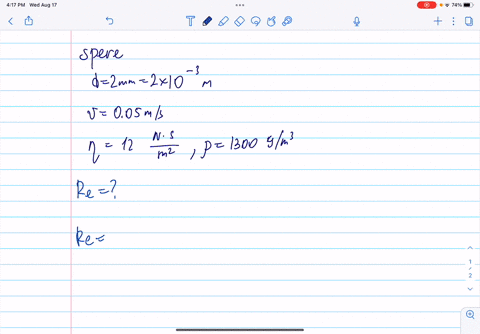 4:17 PM Wed Aug 17
74%
spere
d=2mm=2×10⁻³ m
v=0.05m/s
η=12 N·s/m², ρ=1300 g/m³
Re=?
Re=
1
2